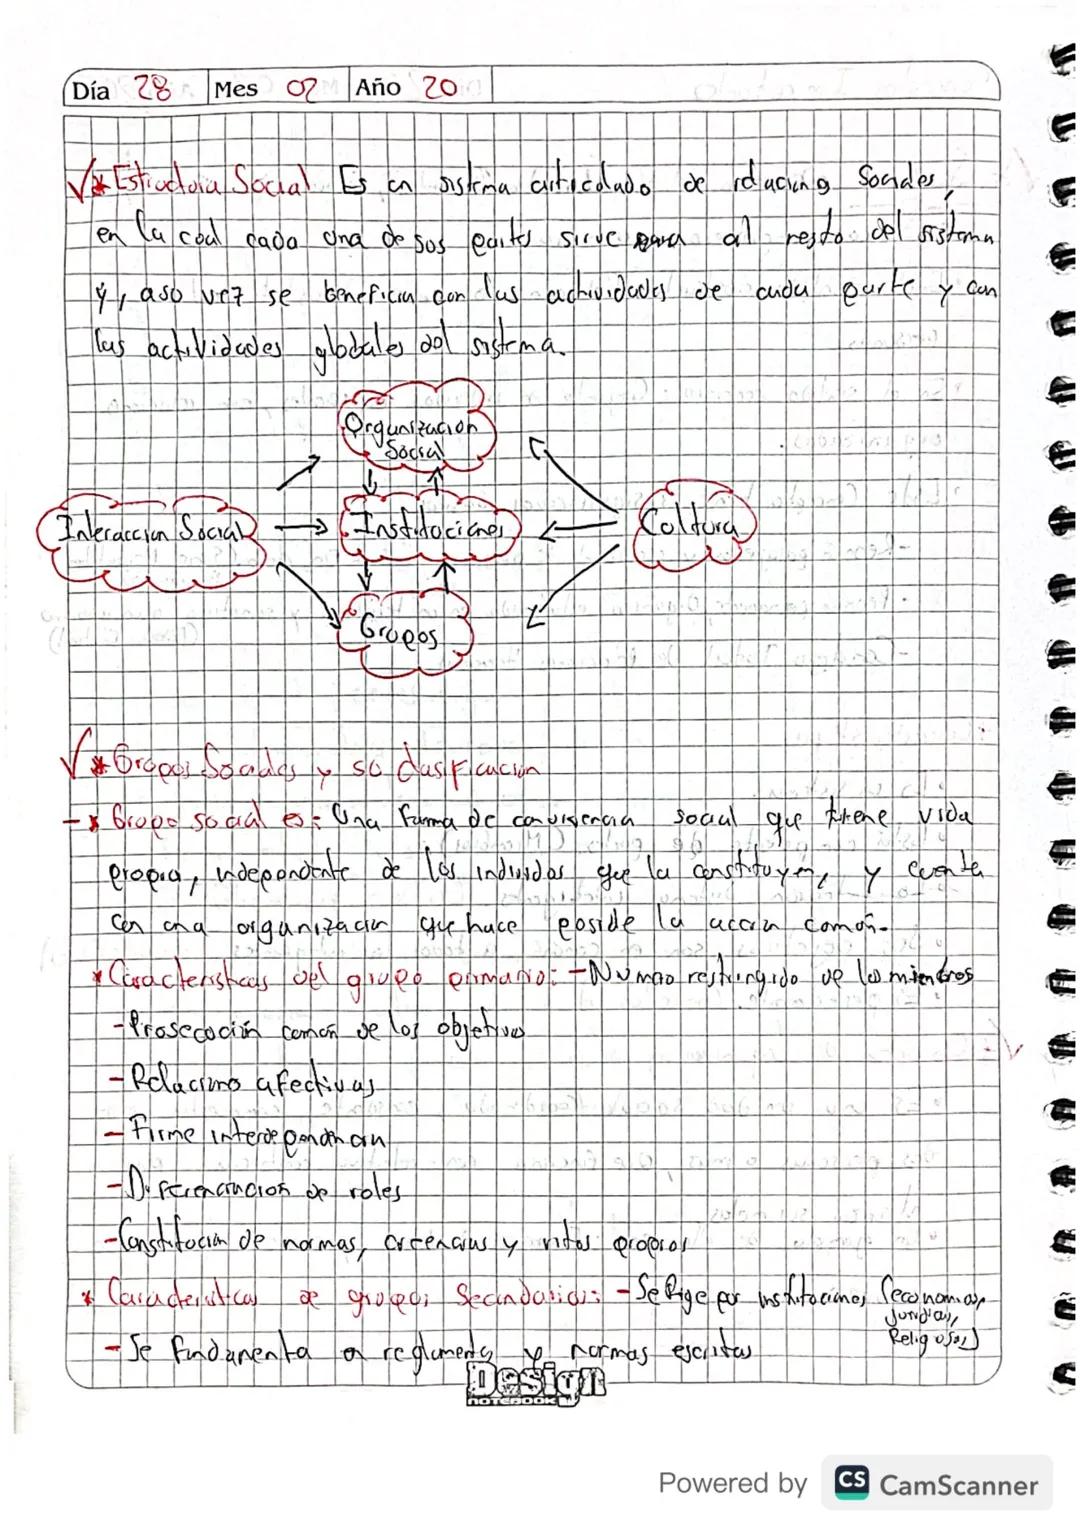 Día 28 Mes 02 Año 20
* Estructura Social Es un sistema articulado de relaciones Sociales,
en la cual cada una de sus partes sirve para al resto del sistema
y, a su vez se benefician con las actividades de cada parte y con
las actividades globales del sistema.
Organizacion
Social
Interaccion Social Instituciones Cultura
Grupos
* Grupos Sociales y su clasificación
- * Grupo social es: Una forma de convivencia social que tiene vida
propia, independente de los individos que la constituyen, y cuenta
con una organización que hace posible la acción común.
* Características del grupo primario: - Numero restringido de los miembros
- Prosecución común de los objetivos
- Relaciones afectivas
- Firme interdependencia
- Diferenciación de roles
- Constitución de normas, creencias y ritos propios
* Características de grupos Secundarios: - Se Rige por instituciones (economicas,
Juridicas,
Religiosas)
- Se fundamenta en reglamentos y normas escritas
Design
NOTEBOOK
Powered by CS CamScanner